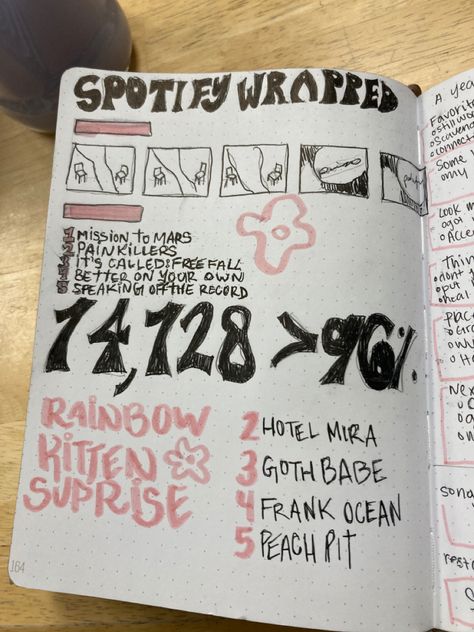 SPOTIFY WRAPPED
1 MISSION TO MARS
2 PAINKILLERS
3 IT'S CALLED: FREEFALL
4 BETTER ON YOUR OWN
5 SPEAKING OFF THE RECORD
74,728 >96%.
RAINBOW
KITTEN
SUPRISE
2 HOTEL MIRA
3 GOTH BABE
4 FRANK OCEAN
5 PEACH PIT
164
A yea
Favorit
still wo
scaven
connect
Some
my
Look m
agai
Acce
Thin
don't
put
heal
place
Nex
sona
rest